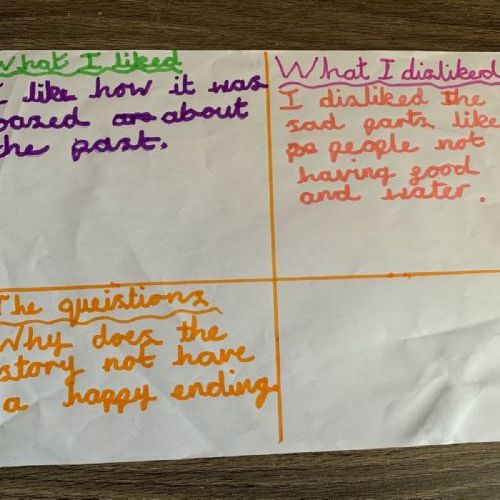 What I liked
I like how it was
based about
the past.
What I disliked
I disliked the
sad parts like
people not
having food
and water.
The queistions
Why does the
story not have
a happy ending.